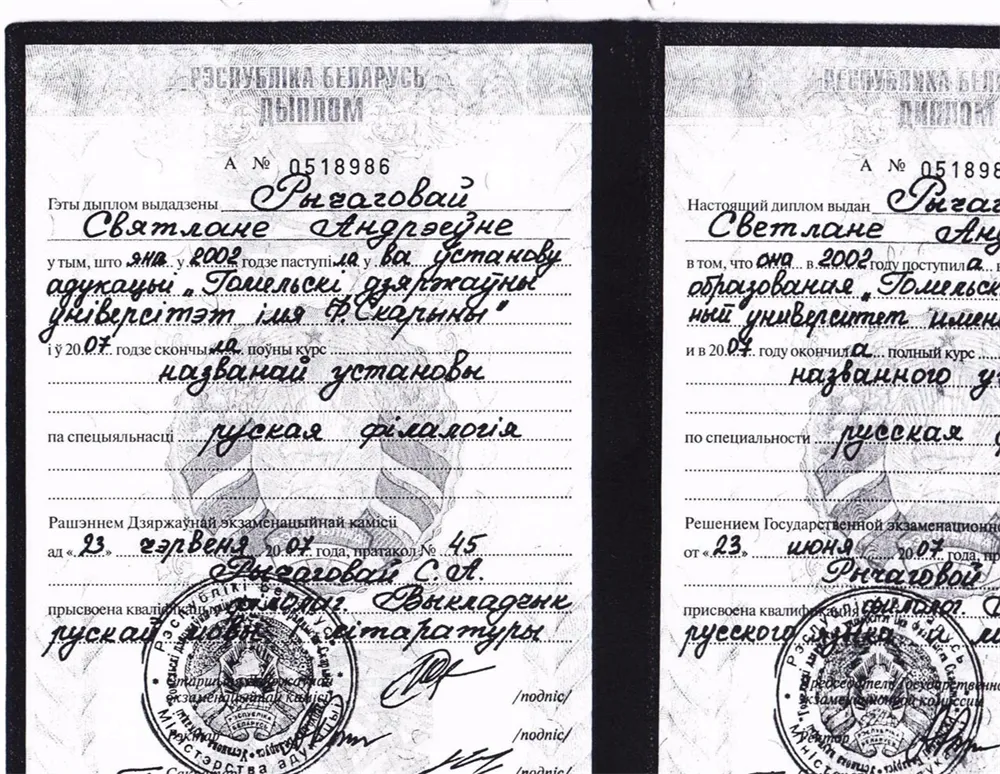 РЭСПУБЛІКА БЕЛАРУСЬ
ДЫПЛОМ
А № 0518986
Гэты дыплом выдадзены Рычаговай
Святлане Андрэеўне
у тым, што яна у 2002 годзе паступіла у ва ўстанову
адукацыі „Гомельскі дзяржаўны
ўніверсітэт імя Ф.Скарыны"
і ў 2007 годзе скончыла поўны курс
названай установы
па спецыяльнасці руская філалогія
Рашэннем Дзяржаўнай экзаменацыйнай камісіі
ад «23» чэрвеня 2007 года, пратакол № 45
Рычаговай С.А.
прысвоена кваліфікацыя Філолаг. Выкладчык
рускай мовы і літаратуры
Старшыня Дзяржаўнай
экзаменацыйнай камісіі /подпіс/
Рэктар /подпіс/
Сакратар /подпіс/
РЕСПУБЛИКА БЕЛ
ДИПЛОМ
А № 051898
Настоящий диплом выдан Рычаг
Светлане Анд
в том, что она в 2002 году поступила в
образования „Гомельск
ный университет имен
и в 2007 году окончила полный курс
названного у
по специальности русская
Решением Государственной экзаменационно
от «23» июня 2007 года, пр
Рычаговой
присвоена квалификация Филолог.
русского языка и ли
Председатель Государственно
экзаменационной комиссии
Ректор